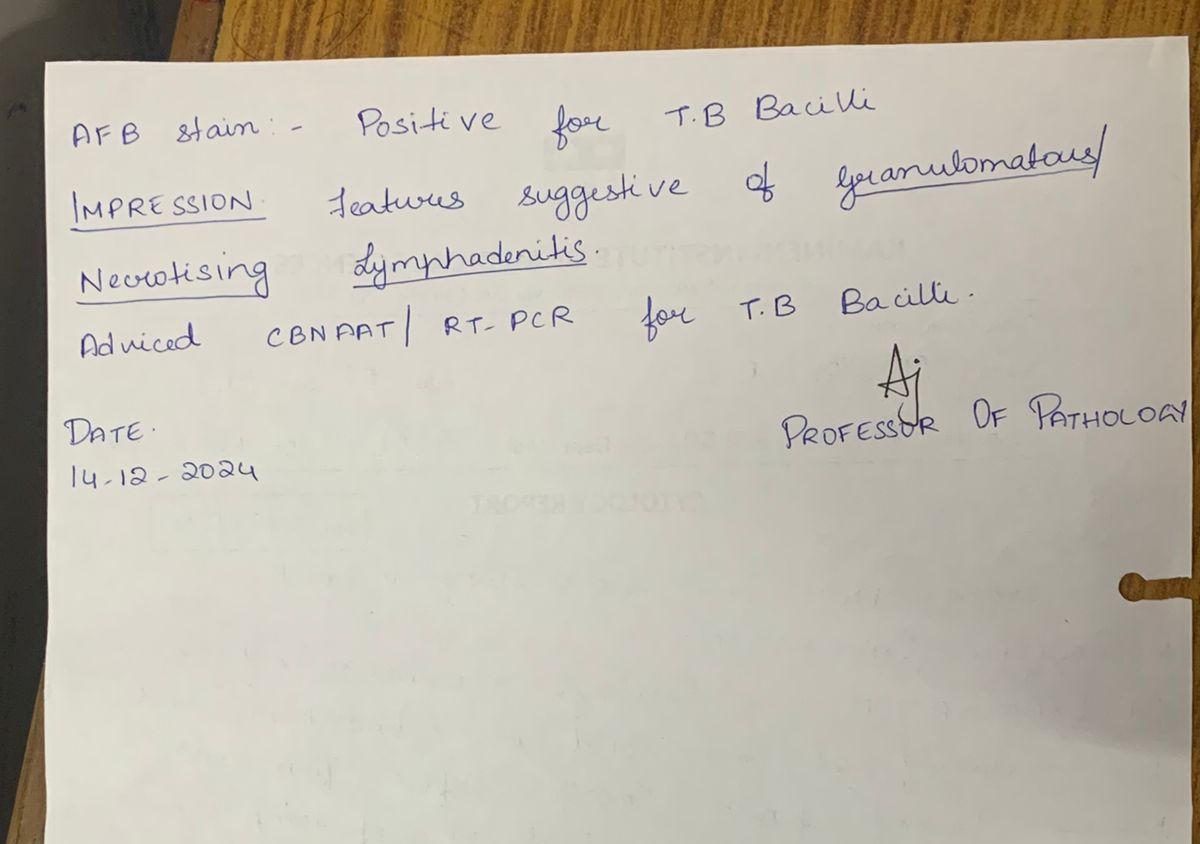 AFB stain:- Positive for T.B Bacilli
IMPRESSION. features suggestive of Granulomatous/
Necrotising Lymphadenitis.
Adviced CBNAAT/ RT-PCR for T.B Bacilli.
Aj
DATE.
PROFESSOR OF PATHOLOGY
14-12-2024
CYTOLOGY REPORT